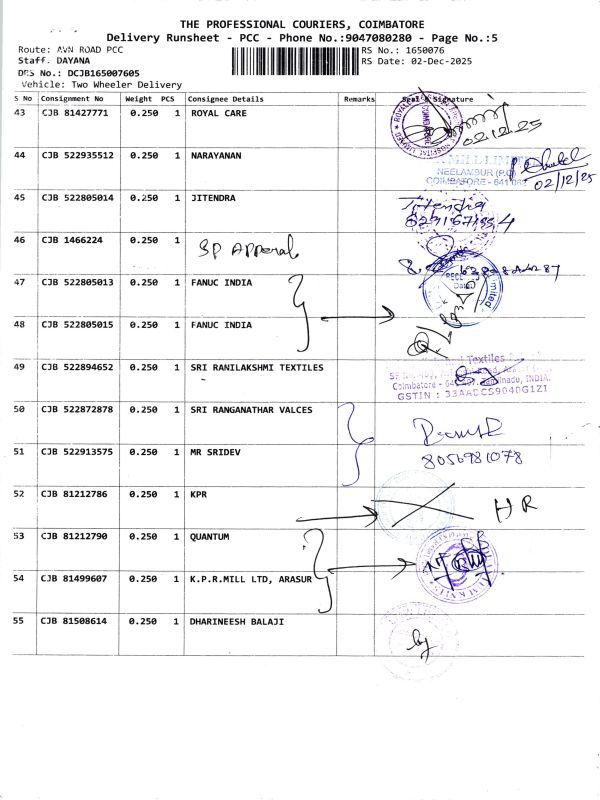 THE PROFESSIONAL COURIERS, COIMBATORE
Delivery Runsheet - PCC - Phone No.:9047080280 - Page No.:5
Route: AVN ROAD PCC RS No.: 1650076
Staff. DAYANA RS Date: 02-Dec-2025
DRS No.: DCJB165007605
Vehicle: Two Wheeler Delivery
S No Consignment No Weight PCS Consignee Details Remarks Seal & Signature
43 CJB 81427771 0.250 1 ROYAL CARE
02.12.25
44 CJB 522935512 0.250 1 NARAYANAN
NEELAMBUR (P.O)
COIMBATORE - 641 062
02/12/25
45 CJB 522805014 0.250 1 JITENDRA Jitendra
46 CJB 1466224 0.250 1 SP Apperal
47 CJB 522805013 0.250 1 FANUC INDIA
48 CJB 522805015 0.250 1 FANUC INDIA
49 CJB 522894652 0.250 1 SRI RANILAKSHMI TEXTILES
Textiles
Coimbatore - Tamilnadu, INDIA.
GSTIN : 33AADCS9040G1ZI
50 CJB 522872878 0.250 1 SRI RANGANATHAR VALCES
51 CJB 522913575 0.250 1 MR SRIDEV 8056981078
52 CJB 81212786 0.250 1 KPR HR
53 CJB 81212790 0.250 1 QUANTUM
54 CJB 81499607 0.250 1 K.P.R.MILL LTD, ARASUR
55 CJB 81508614 0.250 1 DHARINEESH BALAJI